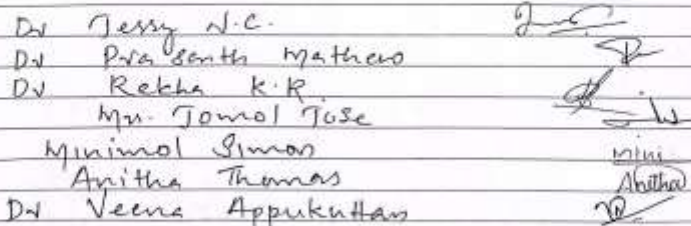 Dr Jessy N.C.
Dr Prasanth Mathew
Dr Rekha K.R
Mrs. Jomol Jose
Minimol Simon mini
Anitha Thomas Anitha
Dr Veena Appukuttan